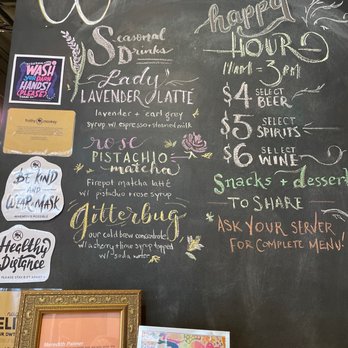 W
Seasonal
Drinks
Lady
LAVENDER LATTE
lavender + earl grey
syrup w/ espresso + steamed milk
rose
PISTACHIO
matcha
Firepot matcha latté
w/ pistachio + rose syrup
Gitterbug
our cold brew concentrate
w/ a cherry + lime syrup topped
w/ soda water
happy
HOUR
11AM = 3PM
$4 SELECT BEER
$5 SELECT SPIRITS
$6 SELECT WINE
Snacks + dessert
TO SHARE
ASK YOUR SERVER
FOR COMPLETE MENU!
WASH
YOUR DAMN
HANDS!
(PLEASE)
BE KIND
AND
WEAR A MASK
Healthy
Distance
PLEASE STAY 6 FT APART
Meredith Palmer